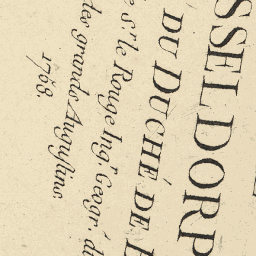 SSELDORP
DU DUCHÉ DE
Sr. le Rouge Ingr. Géogr. du
des grands Augustins.
1768.